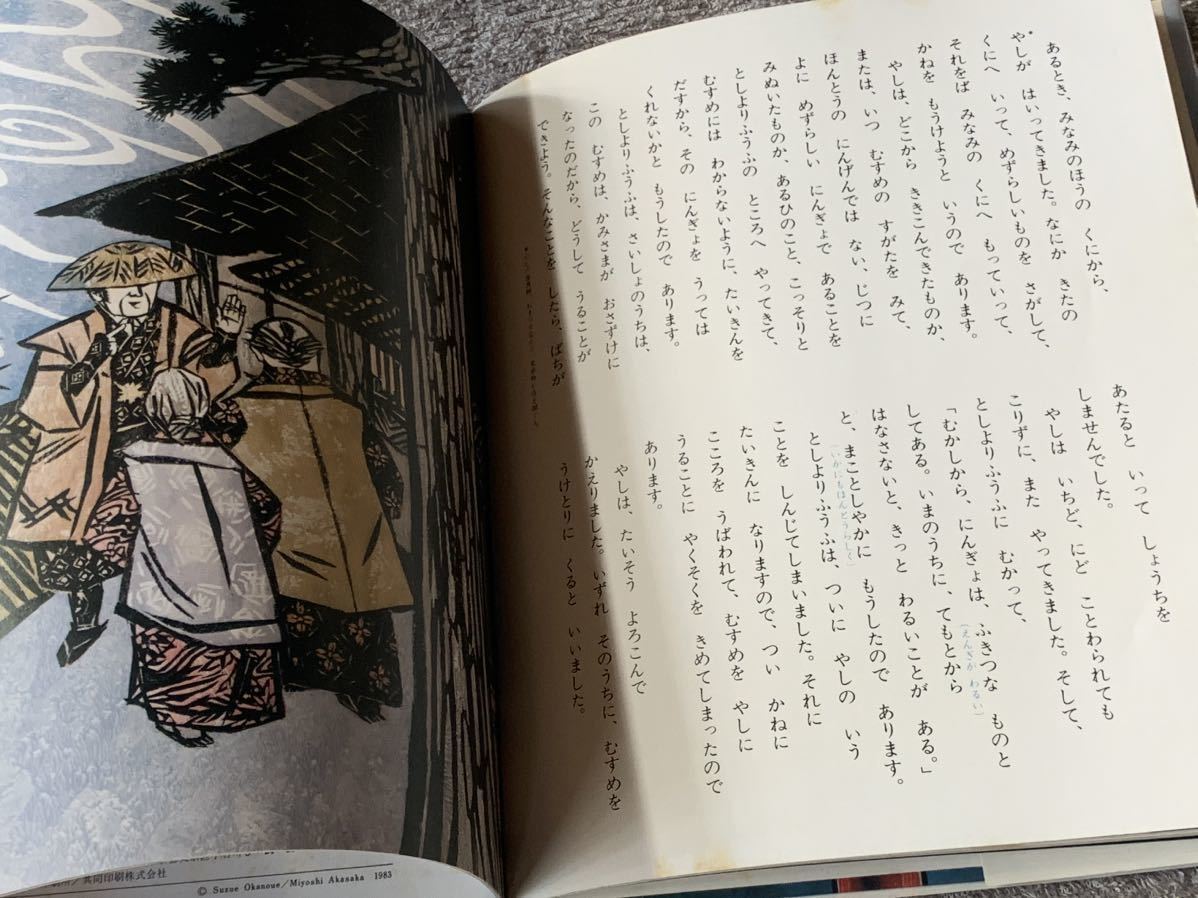 あるとき、みなみのほうの くにから、
*やしが はいってきました。なにか きたの
くにへ いって、めずらしいものを さがして、
それをば みなみの くにへ もっていって、
かねを もうけようと いうので あります。
やしは、どこから ききこんできたものか、
または、いつ むすめの すがたを みて、
ほんとうの にんげんでは ない、じつに
よに めずらしい にんぎょで あることを
みぬいたものか、あるひのこと、こっそりと
としよりふうふの ところへ やってきて、
むすめには わからないように、たいきんを
だすから、その にんぎょを うっては
くれないかと もうしたので あります。
としよりふうふは、さいしょのうちは、
この むすめは、かみさまが おさずけに
なったのだから、どうして うることが
できよう。そんなことを したら、ばちが
あたると いって しょうちを
しませんでした。
やしは いちど、にど ことわられても
こりずに、また やってきました。そして、
としよりふうふに むかって、
「むかしから、にんぎょは、ふきつな ものと
(えんぎが わるい)
してある。いまのうちに、てもとから
はなさないと、きっと わるいことが ある。」
と、まことしやかに もうしたので あります。
(いかにもほんとうらしく)
としよりふうふは、ついに やしの いう
ことを しんじてしまいました。それに
たいきんに なりますので、つい かねに
こころを うばわれて、むすめを やしに
うることに やくそくを きめてしまったので
あります。
やしは、たいそう よろこんで
かえりました。いずれ そのうちに、むすめを
うけとりに くると いいました。
共同印刷株式会社
© Suzue Okanoue/Miyoshi Akasaka 1983